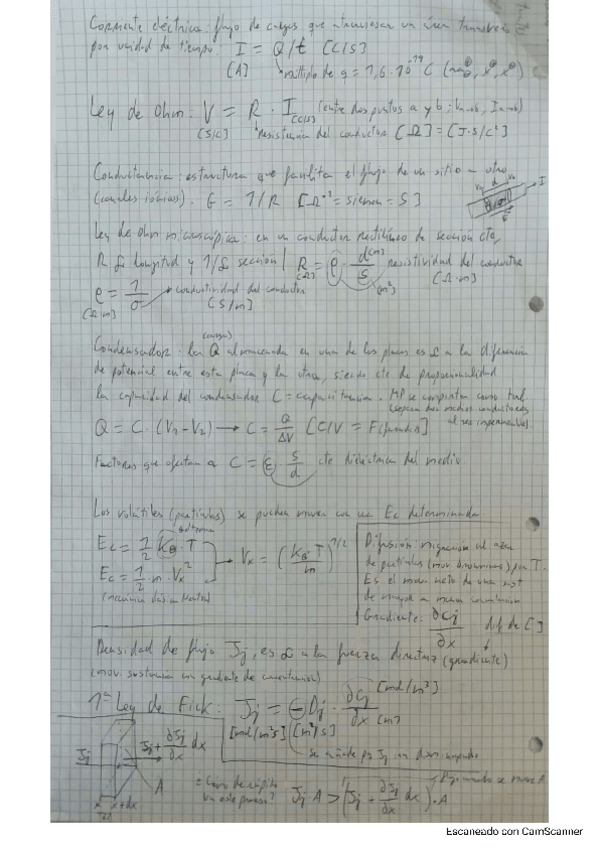 Corriente eléctrica: flujo de cargas que atraviesan un área transversal
por unidad de tiempo: I = Q/t [C/s]
[A] múltiplo de q = 1,6·10⁻¹⁹ C
Ley de Ohm: V = R · I [C/s] (entre dos puntos a y b:
[J/C] resistencia del conductor [Ω] = [J·s/C²]
Conductancia: estructura que facilita el flujo de un sitio a otro
(canales iónicos). G = 1/R [Ω⁻¹ = siemen = S]
I
Ley de Ohm microscópica: en un conductor rectilíneo de sección cte,
R longitud y 1/ sección | R = ρ · d/S resistividad del conductor
[Ω] (m) (m²) [Ω·m]
ρ = 1/σ → conductividad del conductor
[Ω·m] [S/m]
(carga)
Condensador: la Q almacenada en una de las placas es a la diferencia
de potencial entre esta placa y la otra, siendo cte de proporcionalidad
la capacidad del condensador C = capacitancia. MP se comporta como tal
(separan dos medios conductores
Q = C · (V₁ - V₂) → C = Q/ΔV [C/V = F (faradio)] al ser impermeable).
Factores que afectan a C = ε · S/d cte dieléctrica del medio
Los (partículas) se pueden mover con una Ec determinada
Boltzmann
Ec = 1/2 K_B · T
Ec = 1/2 · m · Vx² → Vx = (K_B·T/m)^1/2
(mecánica clásica Newton)
Difusión: migración al azar
de partículas (mov. browniano) por T.
Es el mov. neto de una sust
de mayor a menor concentración
Gradiente: ∂Cj/∂x dif de [ ]
Densidad de flujo Jj, es a la fuerza directriz (gradiente)
(mov. sustancia un gradiente de concentración)
1ª Ley de Fick: Jj = - Dj · ∂Cj/∂x [mol/m³] [m]
[mol/m²s] [m²/s]
se añade pq Jj disminuyendo
Jj Jj + ∂Jj/∂x dx
A
x x+dx
Jj A > (Jj + ∂Jj/∂x dx) · A
Escaneado con CamScanner